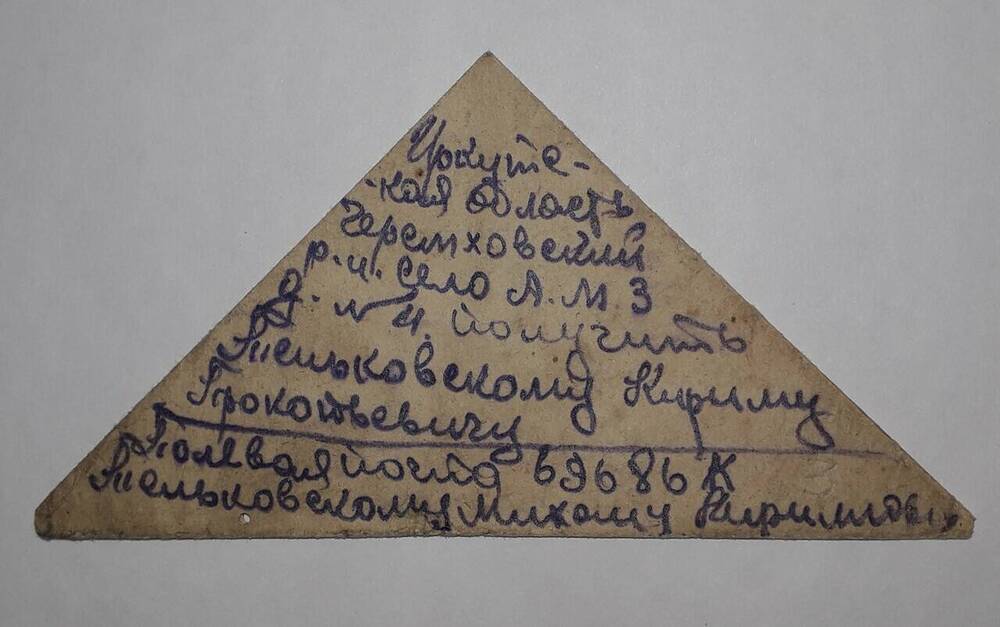 Иркутс-
кая область
Черемховский
р.н. село А.М.З
д. №4. получить
Пеньковскому Кирилу
Прокопьевичу
Полевая почта 69686 К
Пеньковскому Михаилу